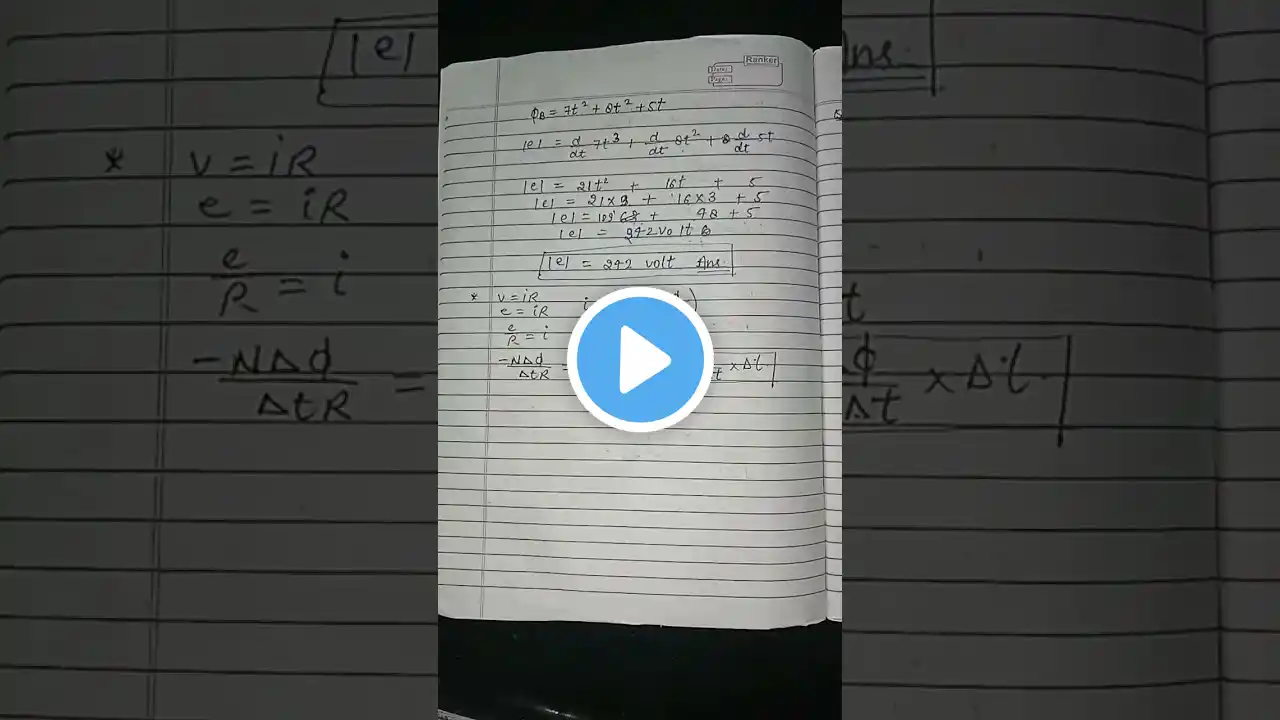 Ranker
Date:
Page:
φB = 7t² + 8t² + 5t
|e| = d/dt 7t³ + d/dt 8t² + d/dt 5t
|e| = 21t² + 16t + 5
|e| = 21×9 + 16×3 + 5
|e| = 189 + 48 + 5
|e| = 242 volt
|e| = 242 volt Ans.
* v = iR
e = iR
e/R = i
-NΔφ/ΔtR =
× Δt